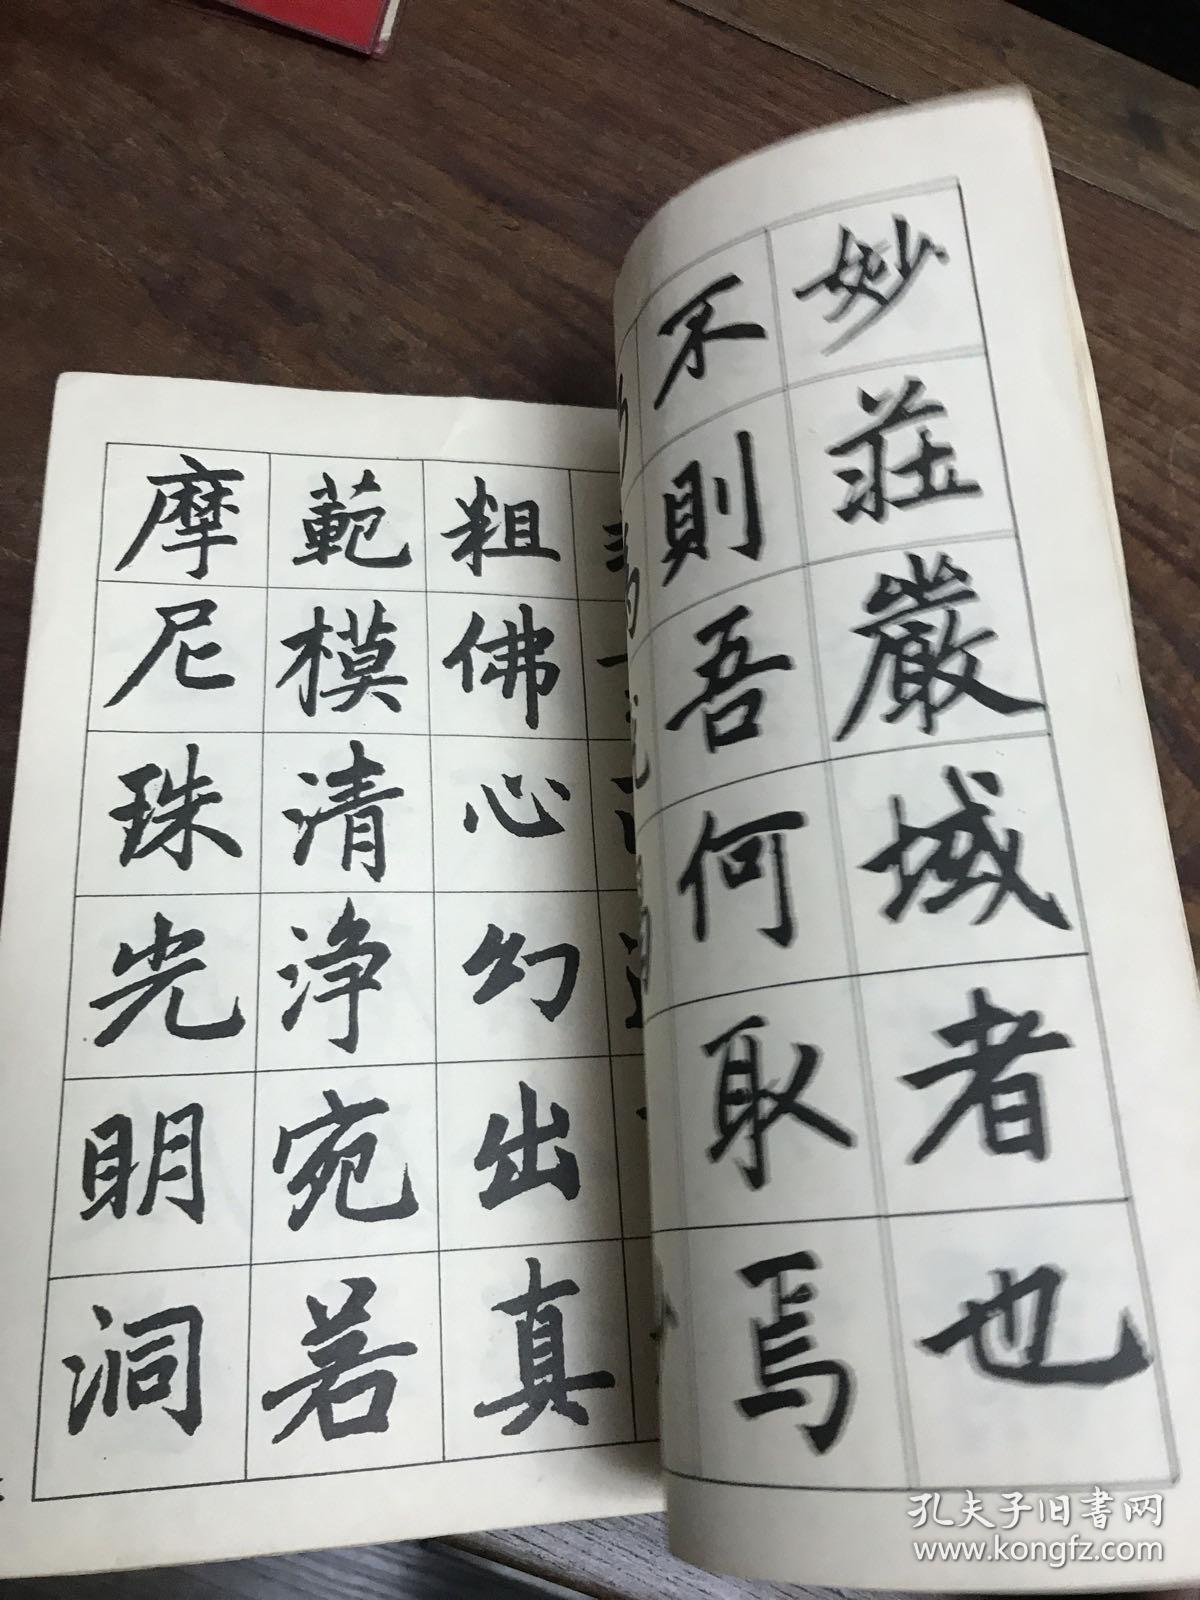 妙莊嚴域者也
不則吾何取焉
粗佛心幻出真
範模清浄宛若
摩尼珠光明洞
孔夫子旧書网
www.kongfz.com